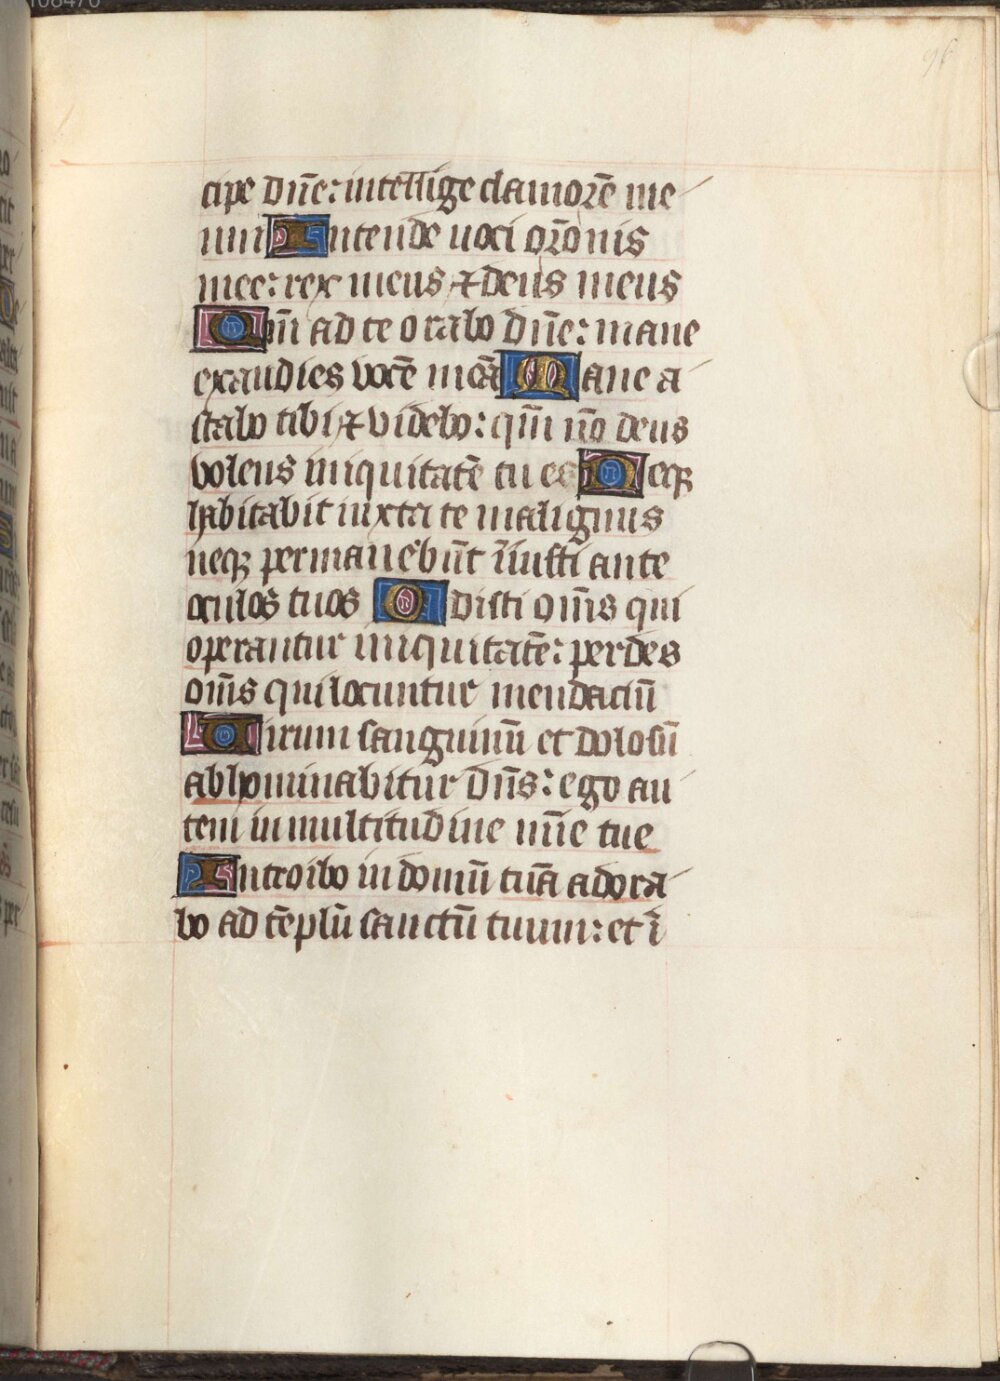 108470
96
cipe dn̄e: intellige clamorē me
um Intende uoci or̄onis
mee: rex meus ⁊ deus meus
Qm̄ ad te orabo dn̄e: mane
exaudies vocē meā Mane a
stabo tibi ⁊ videbo: qm̄ nō deus
volens iniquitatē tu es Neqꝫ
habitabit iuxta te malignus
neqꝫ permanebūt īiusti ante
oculos tuos Odisti om̄s qui
operantur iniquitatē: perdes
om̄s qui locuntur mendaciū
Uirum sanguinū et dolosū
abhominabitur dn̄s: ego au
tem in multitudine mīe tue
Introibo in domū tuā adora
bo ad tēplū sanctū tuum: et ī